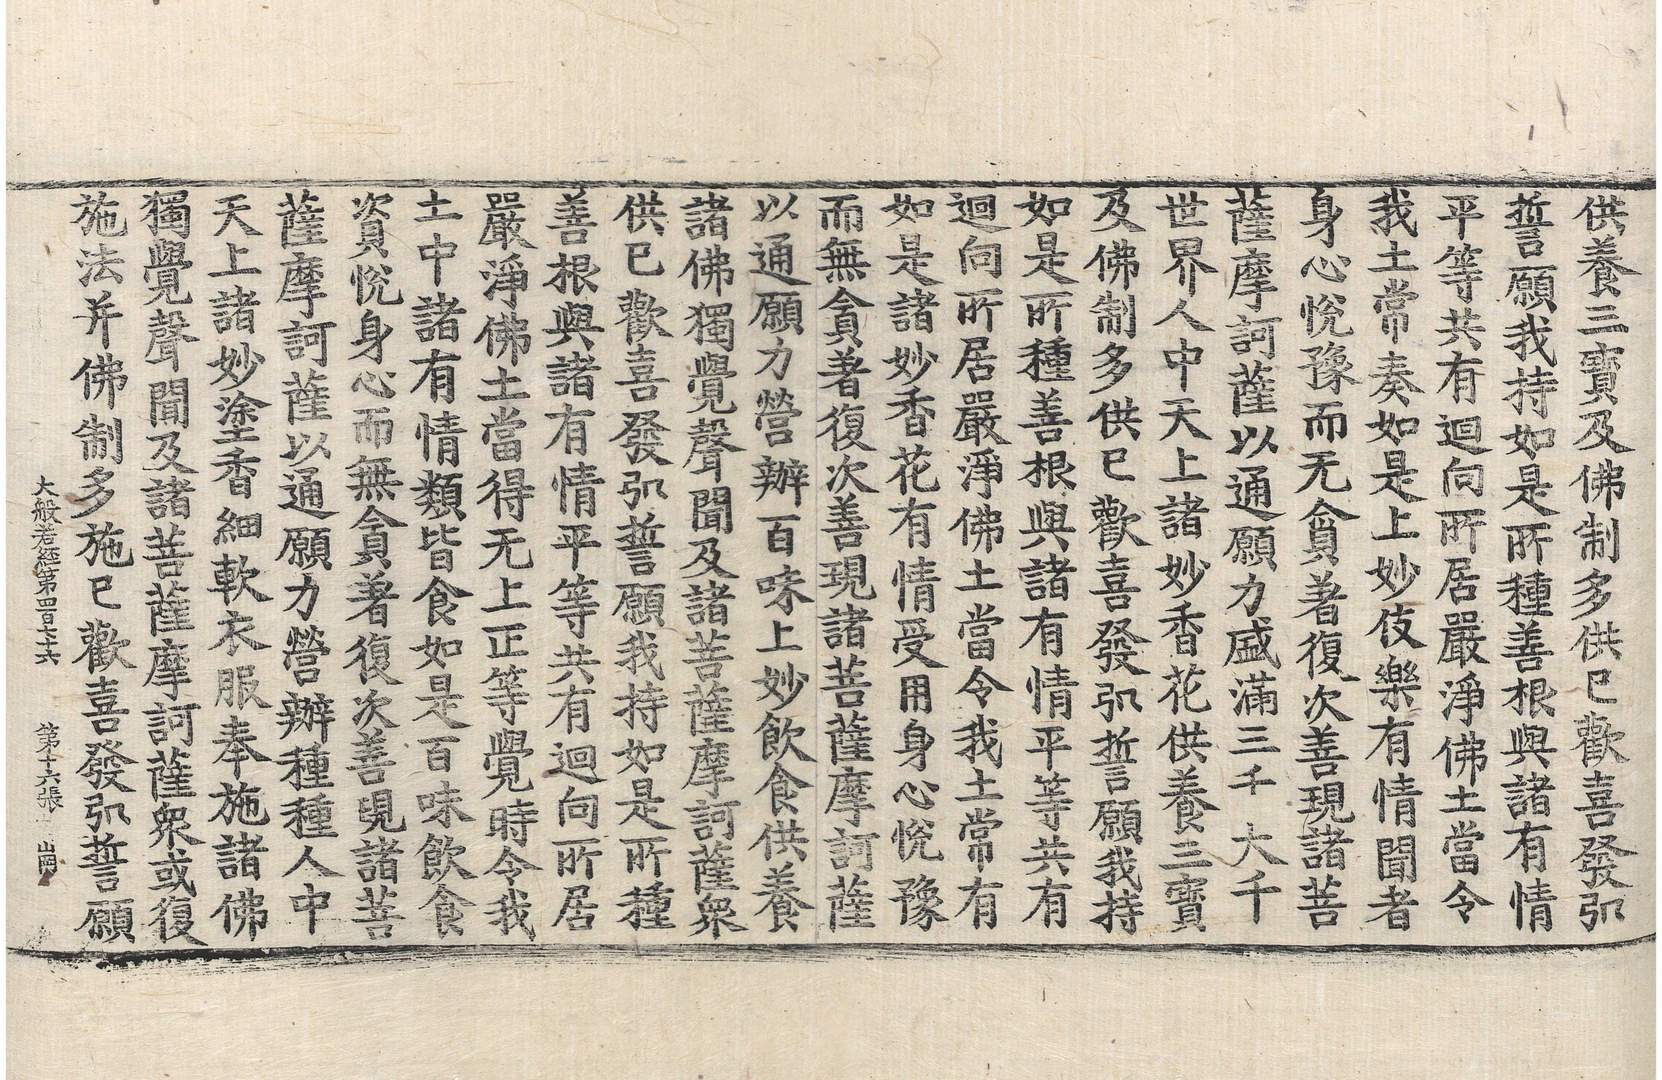 供養三寶及佛制多供已歡喜發弘
誓願我持如是所種善根與諸有情
平等共有迴向所居嚴淨佛土當令
我土常奏如是上妙伎樂有情聞者
身心悅豫而无貪著復次善現諸菩
薩摩訶薩以通願力盛滿三千大千
世界人中天上諸妙香花供養三寶
及佛制多供已歡喜發弘誓願我持
如是所種善根與諸有情平等共有
迴向所居嚴淨佛土當令我土常有
如是諸妙香花有情受用身心悅豫
而無貪著復次善現諸菩薩摩訶薩
以通願力營辦百味上妙飲食供養
諸佛獨覺聲聞及諸菩薩摩訶薩衆
供已歡喜發弘誓願我持如是所種
善根與諸有情平等共有迴向所居
嚴淨佛土當得无上正等覺時令我
土中諸有情類皆食如是百味飲食
資悅身心而無貪著復次善現諸菩
薩摩訶薩以通願力營辦種種人中
天上諸妙塗香細軟衣服奉施諸佛
獨覺聲聞及諸菩薩摩訶薩衆或復
施法并佛制多施已歡喜發弘誓願
大般若經第四百七十六 第十六張 岡